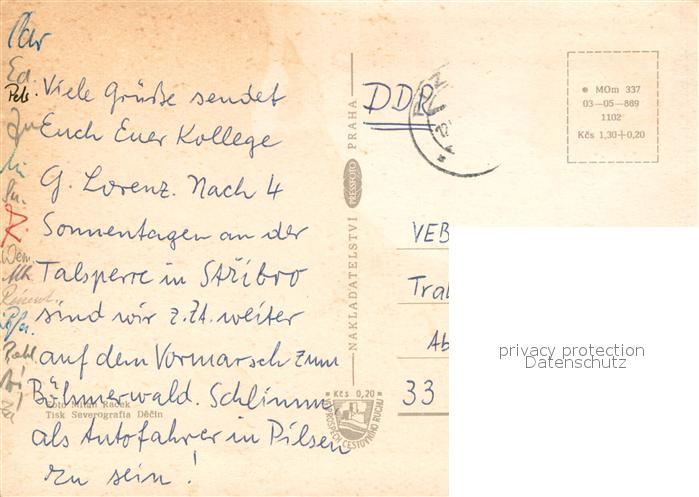 Viele Grüße sendet
Euch Euer Kollege
G. Lorenz. Nach 4
Sonnentagen an der
Talsperre in Stříbro
sind wir z.Zt. weiter
auf dem Vormarsch zum
Böhmerwald. Schlimm,
als Autofahrer in Pilsen
zu sein!
Foto Milan Raček
Tisk Severografia Děčín
NAKLADATELSTVÍ PRESSFOTO PRAHA
Kčs 0,20
VE PROSPĚCH CESTOVNÍHO RUCHU
DDR
MOm 337
03-05-869
1102
Kčs 1,30+0,20
VEB
Ab
33
privacy protection
Datenschutz